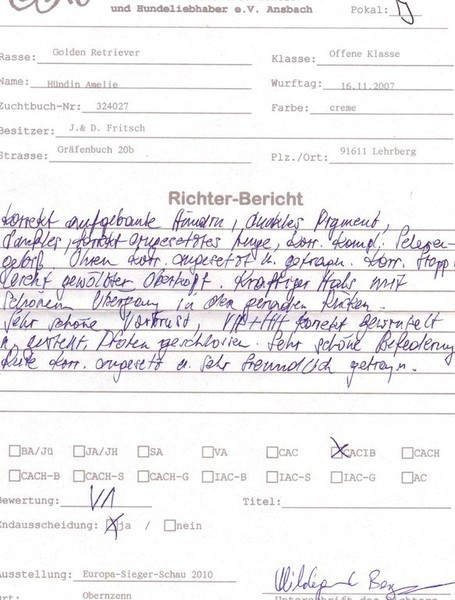 und Hundeliebhaber e.V. Ansbach
Pokal: J
Rasse: Golden Retriever
Klasse: Offene Klasse
Name: Hündin Amelie
Wurftag: 16.11.2007
Zuchtbuch-Nr: 324027
Farbe: creme
Besitzer: J.& D. Fritsch
Strasse: Gräfenbuch 20b
Plz./Ort: 91611 Lehrberg
Richter-Bericht
korrekt aufgebaute Hündin, dunkles Pigment,
dunkles, korrekt angesetztes Auge, korr. kompl. Scheren-
gebiß. Ohren korr. angesetzt u. getragen. Korr. Stopp
leicht gewölbter Oberkopf. Kräftiger Hals mit
schönem Übergang in den geraden Rücken.
Sehr schöne Vorbrust, VH+HH korrekt gewinkelt
u. gestellt Pfoten geschlossen. Sehr schöne Befederung
Rute korr. angesetzt u. sehr freundlich getragen.
BA/Jü JA/JH SA VA CAC CACIB CACH
CACH-B CACH-S CACH-G IAC-B IAC-S IAC-G AC
Bewertung: V1
Titel:
Endausscheidung: ja / nein
Ausstellung: Europa-Sieger-Schau 2010
Ort: Obernzenn
Unterschrift des Richters